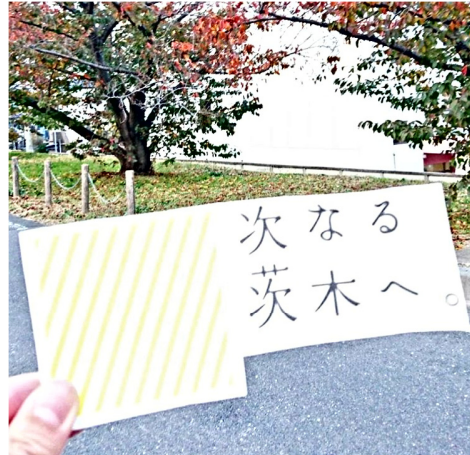 次なる
茨木へ